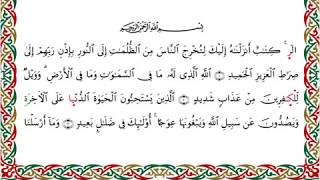 بِسْمِ ٱللَّهِ ٱلرَّحْمَٰنِ ٱلرَّحِيمِ
الٓر ۚ كِتَٰبٌ أَنزَلْنَٰهُ إِلَيْكَ لِتُخْرِجَ ٱلنَّاسَ مِنَ ٱلظُّلُمَٰتِ إِلَى ٱلنُّورِ بِإِذْنِ رَبِّهِمْ إِلَىٰ
صِرَٰطِ ٱلْعَزِيزِ ٱلْحَمِيدِ ۝ ٱللَّهِ ٱلَّذِى لَهُۥ مَا فِى ٱلسَّمَٰوَٰتِ وَمَا فِى ٱلْأَرْضِ ۗ وَوَيْلٌ
لِّلْكَٰفِرِينَ مِنْ عَذَابٍ شَدِيدٍ ۝ ٱلَّذِينَ يَسْتَحِبُّونَ ٱلْحَيَوٰةَ ٱلدُّنْيَا عَلَى ٱلْءَاخِرَةِ
وَيَصُدُّونَ عَن سَبِيلِ ٱللَّهِ وَيَبْغُونَهَا عِوَجًا ۚ أُو۟لَٰٓئِكَ فِى ضَلَٰلٍۭ بَعِيدٍ ۝ وَمَآ أَرْسَلْنَا